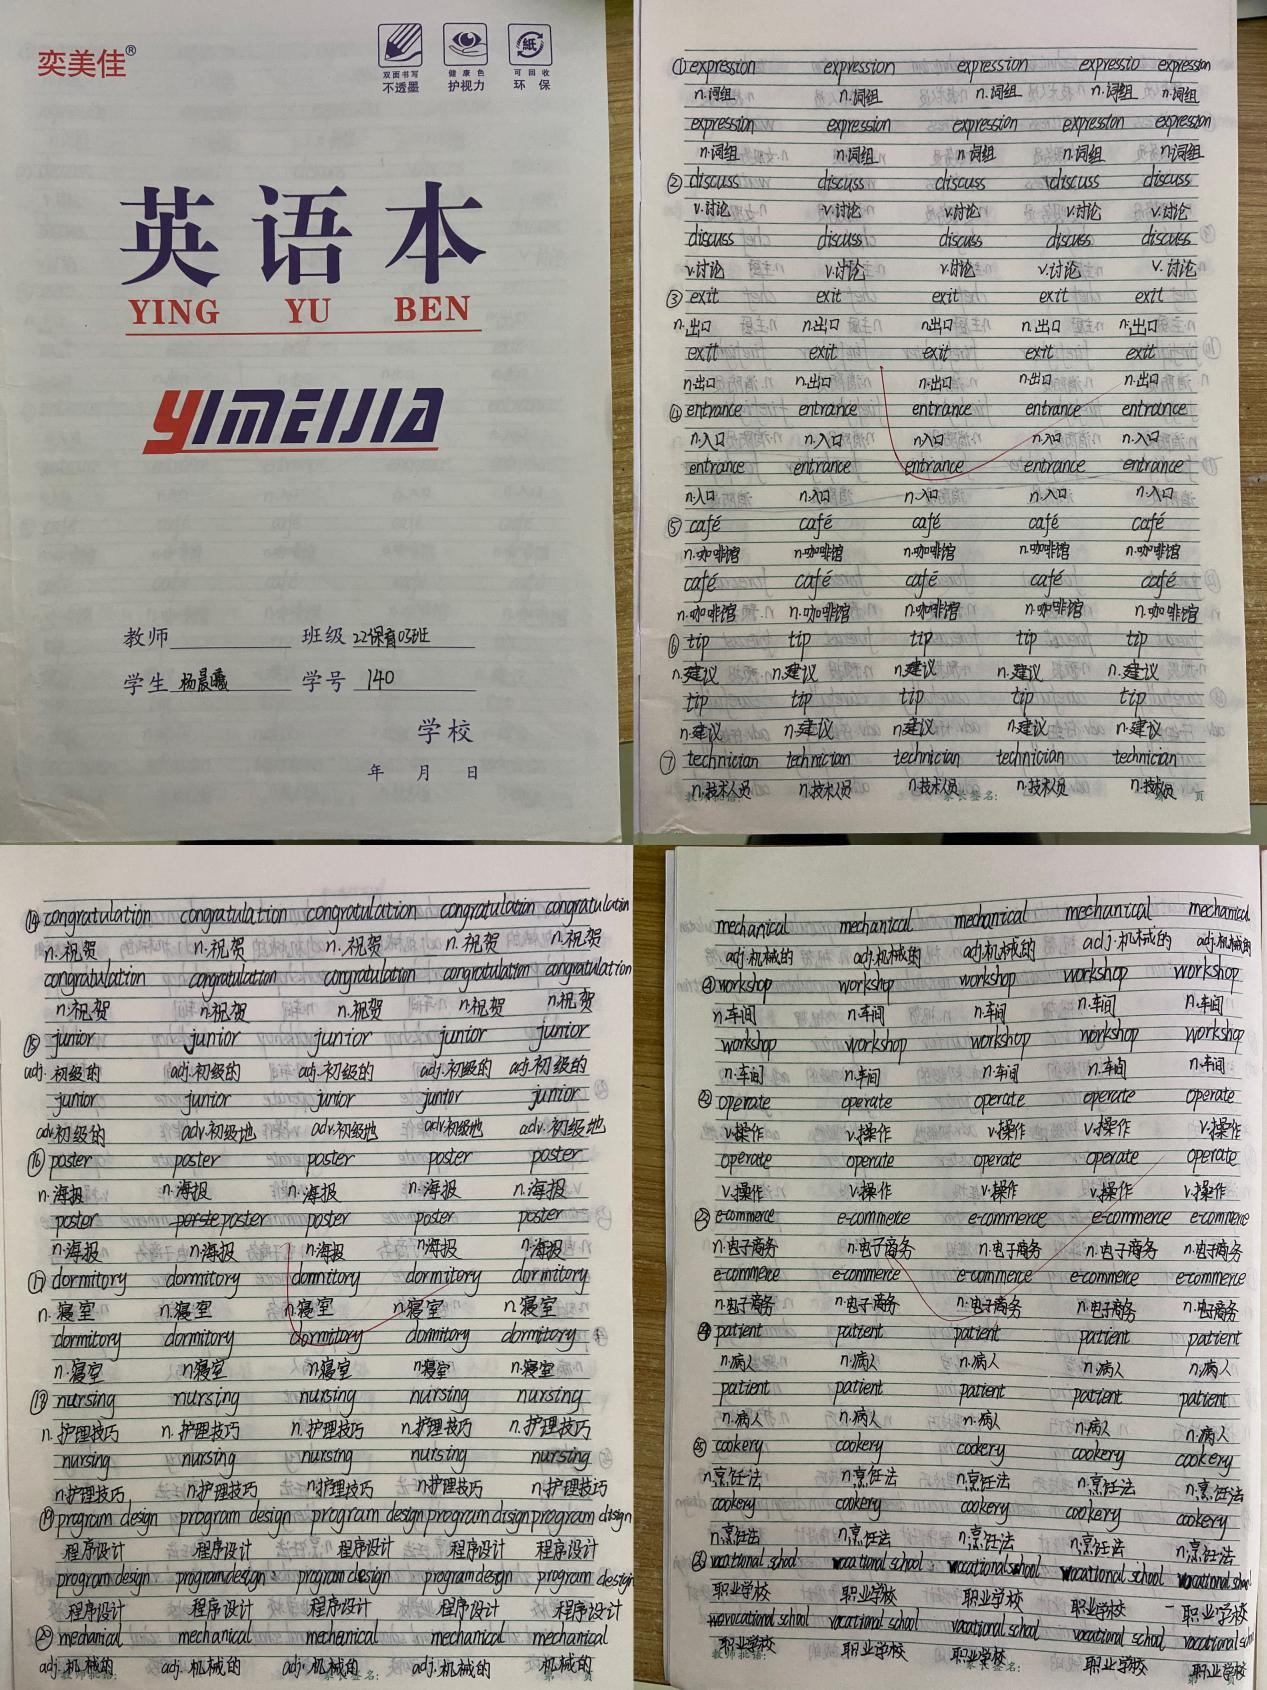 奕美佳®
双面书写 健康色 可回收
不透墨 护视力 环保
紙
英语本
YING YU BEN
YIMEIJIA
教师 班级 22保育03班
学生 杨晨曦 学号 140
学校
年 月 日
① expression expression expression expressio expression
n.词组 n.词组 n.词组 n.词组 n.词组
expression expression expression expression expression
n.词组 n.词组 n.词组 n.词组 n.词组
② discuss discuss discuss discuss discuss
v.讨论 v.讨论 v.讨论 v.讨论 v.讨论
discuss discuss discuss discuss discuss
v.讨论 v.讨论 v.讨论 v.讨论 v.讨论
③ exit exit exit exit exit
n.出口 n.出口 n.出口 n.出口 n.出口
exit exit exit exit exit
n.出口 n.出口 n.出口 n.出口 n.出口
④ entrance entrance entrance entrance entrance
n.入口 n.入口 n.入口 n.入口 n.入口
entrance entrance entrance entrance entrance
n.入口 n.入口 n.入口 n.入口 n.入口
⑤ café café café café café
n.咖啡馆 n.咖啡馆 n.咖啡馆 n.咖啡馆 n.咖啡馆
café café café café café
n.咖啡馆 n.咖啡馆 n.咖啡馆 n.咖啡馆 n.咖啡馆
⑥ tip tip tip tip tip
n.建议 n.建议 n.建议 n.建议 n.建议
tip tip tip tip tip
n.建议 n.建议 n.建议 n.建议 n.建议
⑦ technician technician technician technician technician
n.技术人员 n.技术人员 n.技术人员 n.技术人员 n.技术员
教师批语: 家长签名: 第 页
⑭ congratulation congratulation congratulation congratulation congratulation
n.祝贺 n.祝贺 n.祝贺 n.祝贺 n.祝贺
congratulation congratulation congratulation congratulation congratulation
n.祝贺 n.祝贺 n.祝贺 n.祝贺 n.祝贺
⑮ junior junior junior junior junior
adj.初级的 adj.初级的 adj.初级的 adj.初级的 adj.初级的
junior junior junior junior junior
adv.初级的 adv.初级地 adv.初级地 adv.初级地 adv.初级地
⑯ poster poster poster poster poster
n.海报 n.海报 n.海报 n.海报 n.海报
poster poster poster poster poster
n.海报 n.海报 n.海报 n.海报 n.海报
⑰ dormitory dormitory dormitory dormitory dormitory
n.寝室 n.寝室 n.寝室 n.寝室 n.寝室
dormitory dormitory dormitory dormitory dormitory
n.寝室 n.寝室 n.寝室 n.寝室 n.寝室
⑱ nursing nursing nursing nursing nursing
n.护理技巧 n.护理技巧 n.护理技巧 n.护理技巧 n.护理技巧
nursing nursing nursing nursing nursing
n.护理技巧 n.护理技巧 n.护理技巧 n.护理技巧 n.护理技巧
⑲ program design program design program design program disign program disign
程序设计 程序设计 程序设计 程序设计 程序设计
program design program design program design program design program design
程序设计 程序设计 程序设计 程序设计 程序设计
⑳ mechanical mechanical mechanical mechanical mechanical
adj.机械的 adj.机械的 adj.机械的 adj.机械的 机械的
教师批语: 家长签名: 第 页
mechanical mechanical mechanical mechanical mechanical
adj.机械的 adj.机械的 adj.机械的 adj.机械的 adj.机械的
㉑ workshop workshop workshop workshop workshop
n.车间 n.车间 n.车间 n.车间 n.车间
workshop workshop workshop workshop workshop
n.车间 n.车间 n.车间 n.车间 n.车间
㉒ operate operate operate operate operate
v.操作 v.操作 v.操作 v.操作 v.操作
operate operate operate operate operate
v.操作 v.操作 v.操作 v.操作 v.操作
㉓ e-commerce e-commerce e-commerce e-commerce e-commerce
n.电子商务 n.电子商务 n.电子商务 n.电子商务 n.电子商务
e-commerce e-commerce e-commerce e-commerce e-commerce
n.电子商务 n.电子商务 n.电子商务 n.电子商务 n.电子商务
㉔ patient patient patient patient patient
n.病人 n.病人 n.病人 n.病人 n.病人
patient patient patient patient patient
n.病人 n.病人 n.病人 n.病人 n.病人
㉕ cookery cookery cookery cookery cookery
n.烹饪法 n.烹饪法 n.烹饪法 n.烹饪法 n.烹饪法
cookery cookery cookery cookery cookery
n.烹饪法 n.烹饪法 n.烹饪法 n.烹饪法 n.烹饪法
㉖ vocational school vocational school vocational school vocational school vocational school
职业学校 职业学校 职业学校 职业学校 职业学校
vocational school vocational school vocational school vocational school
职业学校 职业学校 职业学校 职业学校 职业学校
教师批语: 家长签名: 第 页